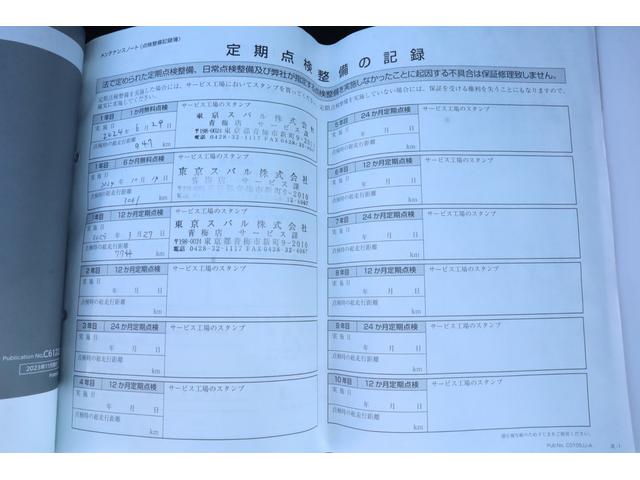 メンテナンスノート(点検整備記録簿)
定期点検整備の記録
法で定められた定期点検整備、日常点検整備及び弊社が指定する点検整備を実施しなかったことに起因する不具合は保証修理致しません。
定期点検整備を実施した場合には、サービス工場においてスタンプを貰ってください。
定期点検整備を実施していない場合には、保証を受ける権利を失うことにもなりますので、
確実に実施してください。
1年目 1か月無料点検
サービス工場のスタンプ
実施日 2024年 6月 29日
点検時の総走行距離
947 km
東京スバル株式会社
青梅店 サービス課
〒198-0024 東京都青梅市新町9-2010
電話 0428-32-1117 FAX 0428-32-
1年目 6か月無料点検
サービス工場のスタンプ
実施日
2024年 10月 19日
点検時の総走行距離
km
東京スバル株式会社
青梅店 サービス課
1年目 12か月定期点検
サービス工場のスタンプ
実施日
2025年 3月 27日
点検時の総走行距離
km
東京スバル株式会社
青梅店 サービス課
〒198-0024 東京都青梅市新町9-2010
電話 0428-32-1117 FAX 0428-32-4067
2年目 12か月定期点検
サービス工場のスタンプ
実施日
年 月 日
点検時の総走行距離
km
3年目 24か月定期点検
サービス工場のスタンプ
実施日
年 月 日
点検時の総走行距離
km
4年目 12か月定期点検
サービス工場のスタンプ
実施日
年 月 日
点検時の総走行距離
km
5年目 24か月定期点検
サービス工場のスタンプ
実施日
年 月 日
点検時の総走行距離
km
6年目 12か月定期点検
サービス工場のスタンプ
実施日
年 月 日
点検時の総走行距離
km
7年目 24か月定期点検
サービス工場のスタンプ
実施日
年 月 日
点検時の総走行距離
km
8年目 12か月定期点検
サービス工場のスタンプ
実施日
年 月 日
点検時の総走行距離
km
9年目 24か月定期点検
サービス工場のスタンプ
実施日
年 月 日
点検時の総走行距離
km
10年目 12か月定期点検
サービス工場のスタンプ
実施日
年 月 日
点検時の総走行距離
km
Publication No.
2023年11月